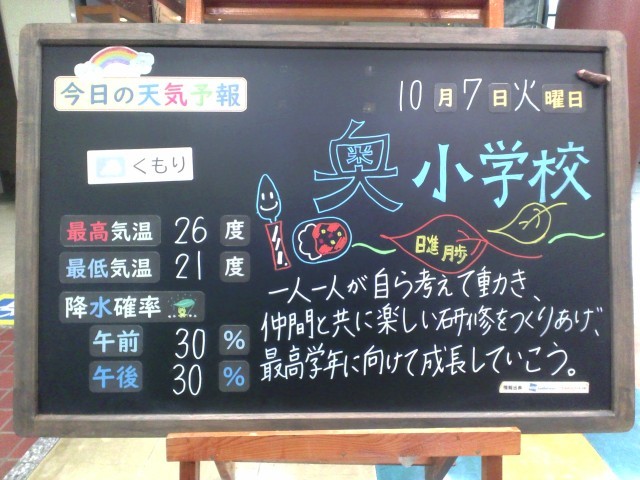 今日の天気予報
10月7日火曜日
くもり
奥小学校
最高気温 26 度
最低気温 21 度
降水確率
午前 30 %
午後 30 %
日進月歩
一人一人が自ら考えて動き、
仲間と共に楽しい研修をつくりあげ、
最高学年に向けて成長していこう。
情報出典: